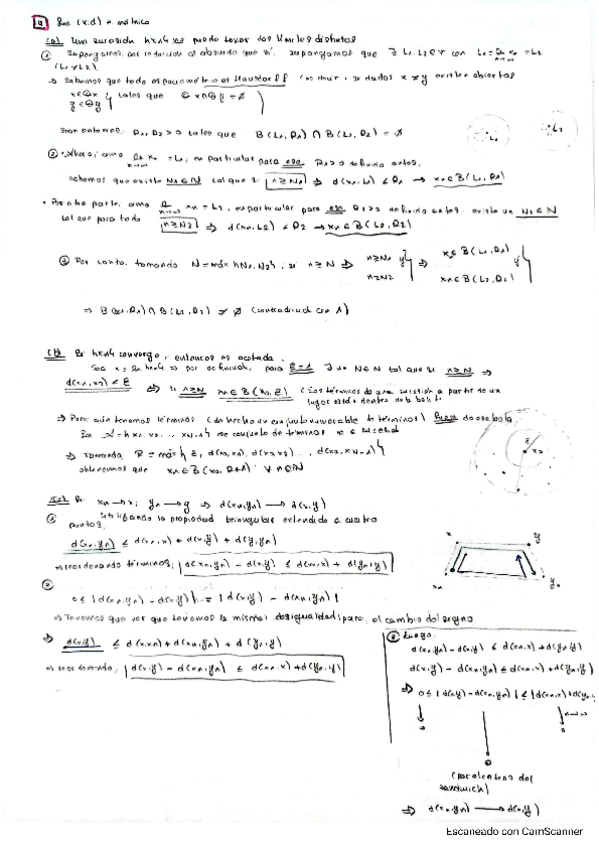 4 Sea (X,d) e. métrico
(a) Una sucesión {xn} no puede tener dos límites distintos
① Supongamos, por reducción al absurdo que sí. Supongamos que ∃ L1, L2 ∈ X con L1 = lim xn = L2
n→∞
(L1 ≠ L2).
→ Sabemos que todo espacio métrico es Hausdorff (es decir, si dados x ≠ y existen abiertos
x ∈ Θx
y ∈ Θy } tales que Θx ∩ Θy = ∅
Sean entonces R1, R2 > 0 tales que B(L1, R1) ∩ B(L2, R2) = ∅
L1
L2
② Ahora, como lim xn = L1, en particular para ese R1 > 0 definido antes,
n→∞
sabemos que existe N1 ∈ N tal que si n ≥ N1 ⇒ d(xn, L1) < R1 → xn ∈ B(L1, R1)
• Por otra parte, como lim xn = L2, en particular para ese R2 > 0 definido antes existe un N2 ∈ N
tal que para todo n ≥ N2 ⇒ d(xn, L2) < R2 → xn ∈ B(L2, R2)
③ Por tanto, tomando N = máx {N1, N2}, si n ≥ N ⇒ n ≥ N1 y n ≥ N2 } ⇒ xn ∈ B(L1, R1) y xn ∈ B(L2, R2) }
⇒ B(L1, R1) ∩ B(L2, R2) ≠ ∅ (contradicción con 1)
(b) Si {xn} converge, entonces es acotada.
Sea x = lim {xn} ⇒ por definición, para ε = 1 ∃ N ∈ N tal que si n ≥ N ⇒
d(xn, x0) < ε ⇔ si n ≥ N xn ∈ B(x0, ε) (Los términos de una sucesión a partir de un
lugar están dentro de la bola)
→ Pero aún tenemos términos ( términos) fuera de esa bola
Sea = {x1, x2, ..., xN-1} ese conjunto de términos
⇒ Tomando R = máx {ε, d(x0, x1), d(x0, x2), ..., d(x0, xN-1)}
obtenemos que xn ∈ B(x0, R+1) ∀ n ∈ N
ε
x0
(c) Si xn → x; yn → y ⇒ d(xn, yn) → d(x, y)
① Utilizando la propiedad triangular extendida a cuatro
puntos,
d(xn, yn) ≤ d(xn, x) + d(x, y) + d(y, yn)
→ reordenando términos; d(xn, yn) − d(x, y) ≤ d(xn, x) + d(yn, y)
x
y
xn
yn
②
0 ≤ |d(xn, yn) − d(x, y)| = |d(x, y) − d(xn, yn)|
→ Tenemos que ver que tenemos la misma desigualdad para el cambio del signo
⇒ d(x, y) ≤ d(x, xn) + d(xn, yn) + d(yn, y)
→ reordenando; d(x, y) − d(xn, yn) ≤ d(xn, x) + d(yn, y)
③ Luego
d(xn, yn) − d(x, y) ≤ d(xn, x) + d(yn, y)
d(x, y) − d(xn, yn) ≤ d(xn, x) + d(yn, y)
⇒ 0 ≤ |d(x, y) − d(xn, yn)| ≤ |d(xn, x) + d(yn, y)
n→∞
0
0
0
(por el lema del
sandwich)
⇒ d(xn, yn) → d(x, y)
Escaneado con CamScanner